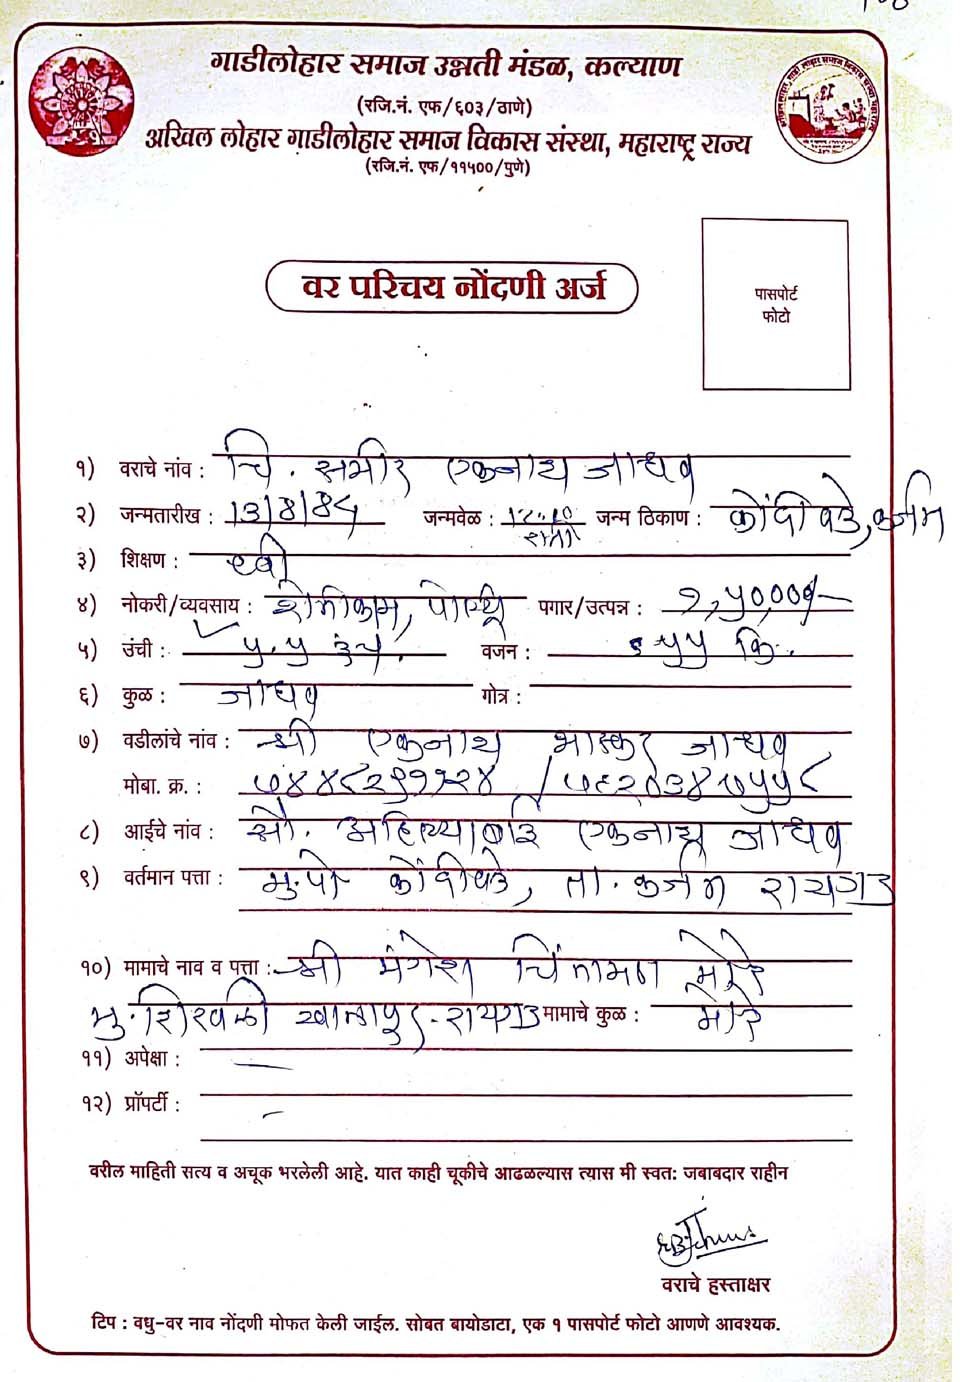 गाडीलोहार समाज उन्नती मंडळ, कल्याण
(रजि.नं. एफ/६०३/ठाणे)
अखिल लोहार गाडीलोहार समाज विकास संस्था, महाराष्ट्र राज्य
(रजि.नं. एफ/११५००/पुणे)
वर परिचय नोंदणी अर्ज
पासपोर्ट
फोटो
१) वराचे नांव : चि. समीर एकनाथ जाधव
२) जन्मतारीख : जन्मवेळ : रात्री जन्म ठिकाण : कोंदीवडे, कर्जत
३) शिक्षण :
४) नोकरी/व्यवसाय : शेतीकाम, पगार/उत्पन्न : १,५०,०००/-
५) उंची : ५.५ इंच. वजन : ५५ कि.
६) कुळ : जाधव गोत्र :
७) वडीलांचे नांव : श्री एकनाथ भास्कर जाधव
मोबा. क्र. :
८) आईचे नांव : सौ. अहिल्याबाई एकनाथ जाधव
९) वर्तमान पत्ता : मु.पो कोंदीवडे, ता. कर्जत रायगड
१०) मामाचे नाव व पत्ता : श्री मंगेश चिंतामण मोरे
मु. शिरवली खालापुर - रायगड मामाचे कुळ : मोरे
११) अपेक्षा : —
१२) प्रॉपर्टी : -
वरील माहिती सत्य व अचूक भरलेली आहे. यात काही चूकीचे आढळल्यास त्यास मी स्वतः जबाबदार राहीन
वराचे हस्ताक्षर
टिप : वधु-वर नाव नोंदणी मोफत केली जाईल. सोबत बायोडाटा, एक १ पासपोर्ट फोटो आणणे आवश्यक.